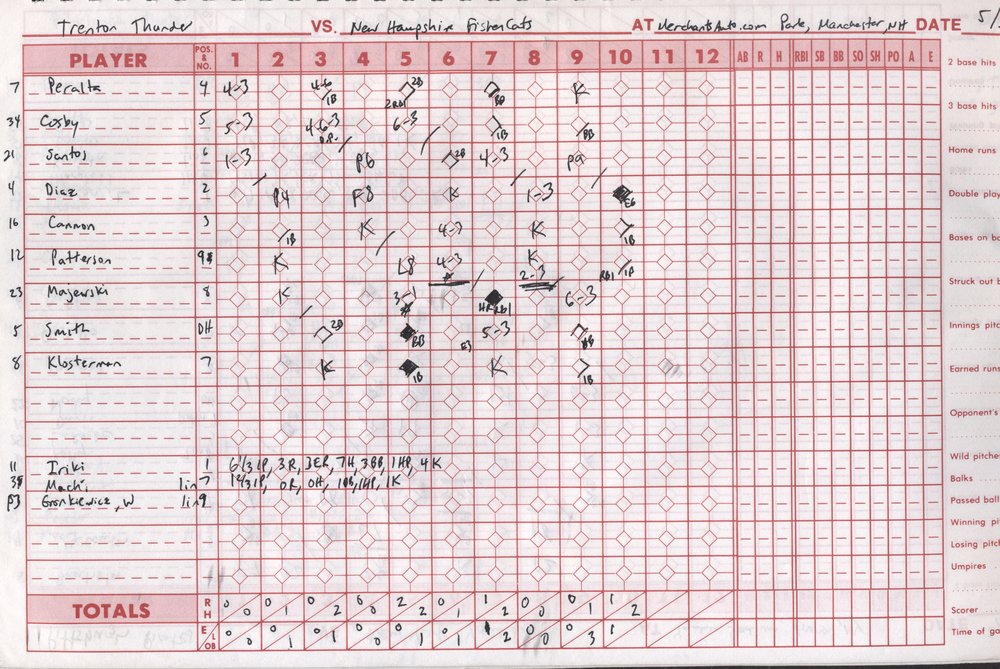 Trenton Thunder VS. New Hampshire Fishercats AT MerchantsAuto.com Park, Manchester, NH DATE 5/
PLAYER POS. & NO. 1 2 3 4 5 6 7 8 9 10 11 12 AB R H RBI SB BB SO SH PO A E
2 base hits
7 Peralta 4 4-3 4-6 1B 2B 2RBI BB K
3 base hits
34 Cosby 5 5-3 4-6-3 D.P. 6-3 1B BB
Home runs
21 Santos 6 1-3 P6 2B 4-3 P9
4 Diaz 2 P4 F8 K 1-3 E6
Double play
16 Cannon 3 1B K 4-3 K 1B
Bases on ba
12 Patterson 9 K L8 4-3 K 2-3 RBI 1B
Struck out b
23 Majewski 8 K 3-1 HR RBI 6-3
Innings pitc
5 Smith DH 2B BB E3 5-3 BB
Earned runs
8 Klosterman 7 K 1B K 1B
Opponent's
11 Iriki 1 6 1/3 IP, 3R, 3ER, 7H, 3BB, 1HP, 4K
Wild pitches
Balks
38 Machi, 1 in 7 1 2/3 IP, 0R, 0H, 1BB, 1HP, 1K
Passed ball
P3 Gronkiewicz, W 1 in 9
Winning pi
Losing pitch
Umpires
TOTALS R H 0 0 0 1 0 2 0 0 2 2 0 1 1 2 0 0 0 1 1 2
Scorer
E LOB 0 0 0 1 0 1 0 0 0 1 0 1 1 2 0 0 0 3 1 1
Time of ga